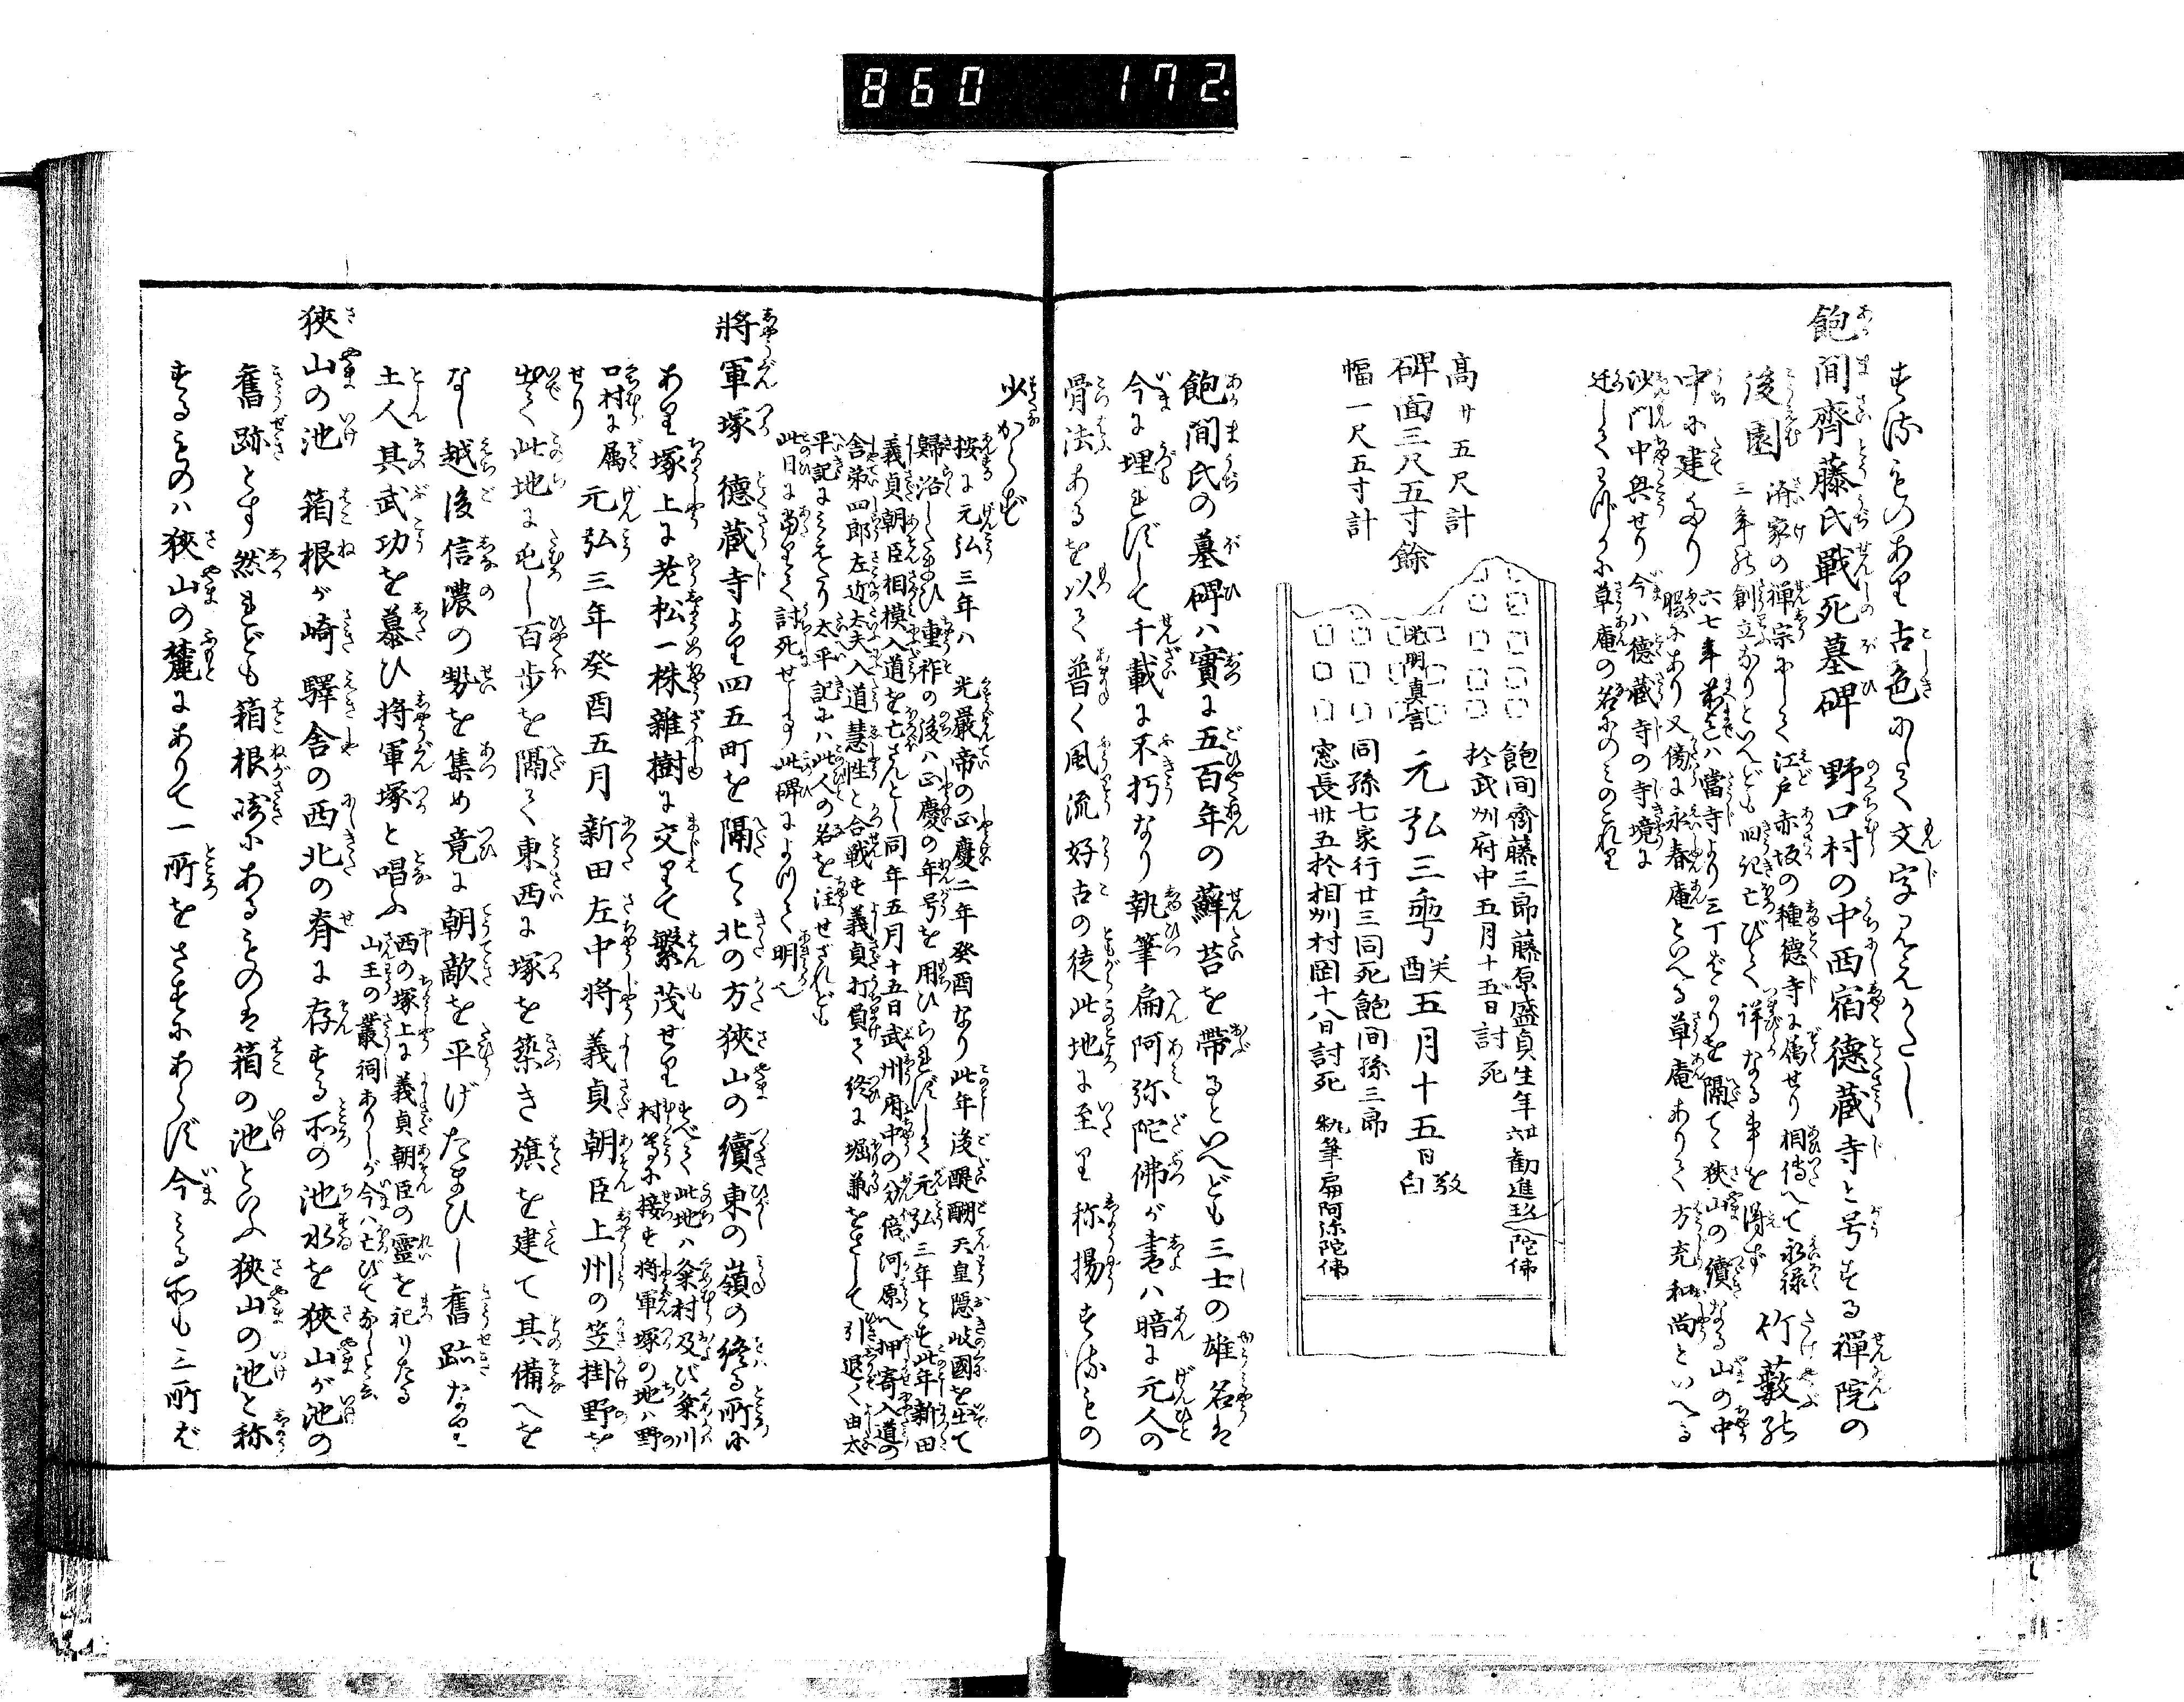 860 172.
するものあり古色にして文字見えかたし
飽間齊藤氏戰死墓碑 野口村の中西宿德蔵寺と号する禪院の
後園 濟家の禪宗にして江戸赤坂の種德寺に属せり相傳へて永禄
三年の創立なりといへども旧記亡びて詳なる事を得ず 竹藪の
中に建たり 六七年前迄は當寺より三丁ばかりを隔てゝ狹山の續なる山の中
腹にあり又傍に永春庵といへる草庵ありて方充和尚といへる
沙門中興せり今は德蔵寺の寺境に
迁してわづかに草庵の名にのみのこれり
高サ五尺計
碑面三尺五寸餘
幅一尺五寸計
飽間齋藤三郎藤原盛貞生年廿六勸進玖陀佛
於武州府中五月十五日討死
光明真言 元弘三年癸酉五月十五日敬白
同孫七家行廿三同死飽間孫三郎
宗長卅五於相州村岡十八日討死 執筆扁阿弥陀佛
飽間氏の墓碑は實に五百年の蘚苔を帶るといへども三士の雄名は
今に埋れずして千載に不朽なり執筆扁阿弥陀佛が書は暗に元人の
骨法あるを以て普く風流好古の徒此地に至り称揚するもの
少からず
按に元弘三年は 光嚴帝の正慶二年癸酉なり此年後醍醐天皇隠岐國を出て
歸洛したまひ重祚の後は正慶の年号を用ひられずして元弘三年とす此年新田
義貞朝臣相模入道を亡さんとし同年五月十五日武州府中の分倍河原へ押寄入道の
舎弟四郎左近太夫入道慧性と合戰す義貞打負て終に堀兼をさして引退く由太
平記にみえたり太平記には此人の名を注せざれども
此日に當りて討死せしよし此碑によつて明也
將軍塚 德蔵寺より四五町を隔てゝ北の方狹山の續東の嶺の終る所に
あり塚上に老松一株雜樹に交りて繁茂せり すべて此地は粂村及び粂川
村等に接す將軍塚の地は野
口村に属せり 元弘三年癸酉五月新田左中将義貞朝臣上州の笠掛野を
出て此地に屯し百歩を隔て東西に塚を築き旗を建て其備へを
なし越後信濃の勢を集め竟に朝敵を平げたまひし舊趾なり
土人其武功を慕ひ将軍塚と唱ふ 西の塚上に義貞朝臣の靈を祀りたる
山王の叢祠ありしが今は亡びてなしと云
狹山の池 箱根ケ崎驛舎の西北の脊に存する所の池水を狹山が池の
舊跡とす然れども箱根ケ崎にあるものは箱の池といふ狹山の池と称
するものは狹山の麓にありて一所をさすにあらず今みる所も三所ば